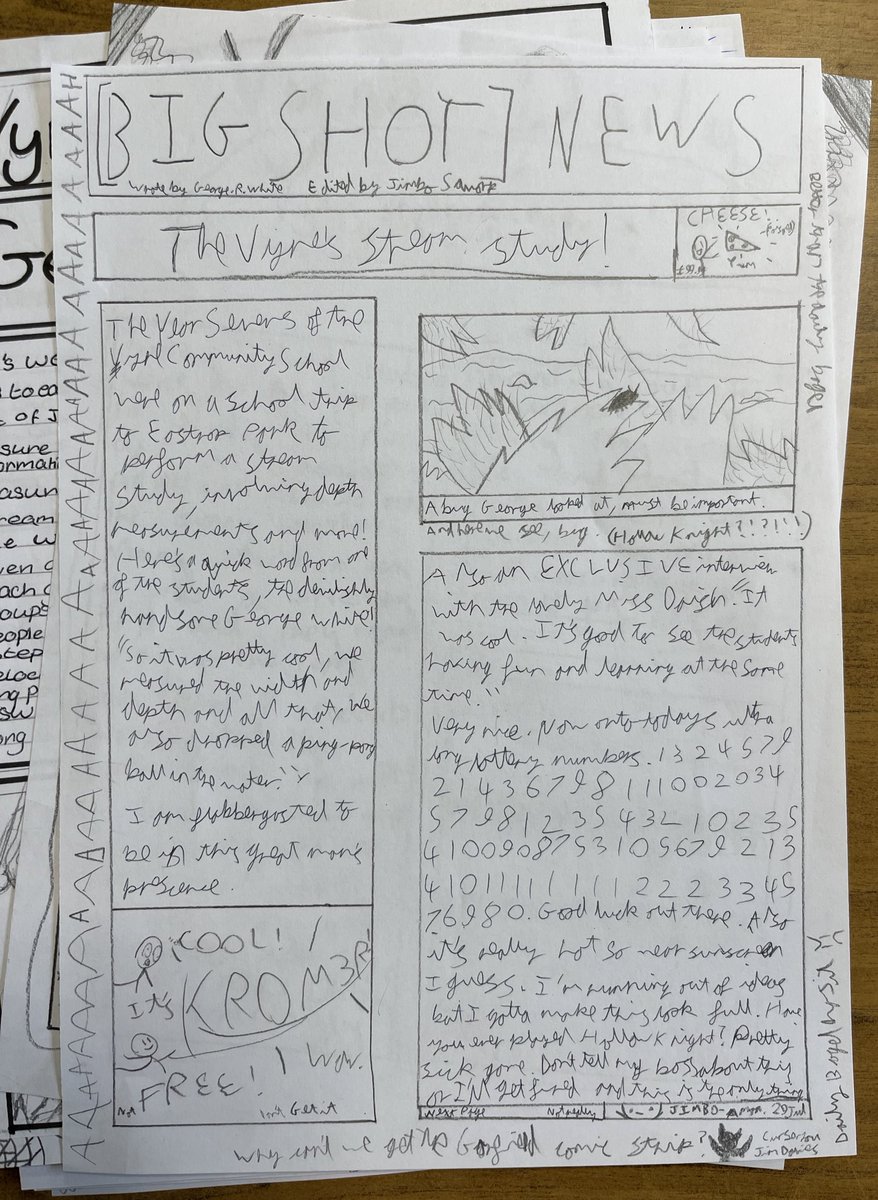 [BIG SHOT] NEWS
Wrote by George.R.White Edited by Jimbo
The Vyne's stream study!
CHEESE!..
Yum
AAAAAAAAAAAAAAAAAAAAAAAAAAAAAAAAAAAAAH
The Year Sevens of the
Vyne Community School
were on a school trip
to Eastrop Park to
perform a stream
study, involving depth
measurements and more!
Here's a quick word from one
of the students, the devilishly
handsome George White!
"So it was pretty cool, we
measured the width and
depth and all that, we
also dropped a ping-pong
ball in the water."
I am flabbergasted to
be in this great man's
presence.
COOL!
IT'S
KROM3R!
FREE! Wow.
Not Get it
A bug George looked at, must be important.
And here we see, bug. (Hollow Knight?!?!!!)
Also an EXCLUSIVE interview
with the lovely Miss Daish. "It
was cool. It's good to see the students
having fun and learning at the same
time."
Very nice. Now onto todays ultra
long lottery numbers. 1 3 2 4 5 7 9
2 1 4 3 6 7 9 8 1 1 1 0 0 2 0 3 4
5 7 9 8 1 2 3 5 4 3 2 1 0 2 3 5
4 1 0 0 9 0 8 7 5 3 1 0 5 6 7 9 2 1 3
4 1 0 1 1 1 1 1 1 1 1 2 2 2 3 3 4 5
7 6 9 8 0. Good luck out there. Also
it's really hot so wear sunscreen
I guess. I'm running out of ideas
but I gotta make this look full. Have
you ever played Hollow knight? Pretty
sick game. Don't tell my boss about this
or I'll get fired and this is the only thing
Next Page JIMBO-
Better than the daily bugle
Why can't we get the Garfield comic strip?
Jim Davies